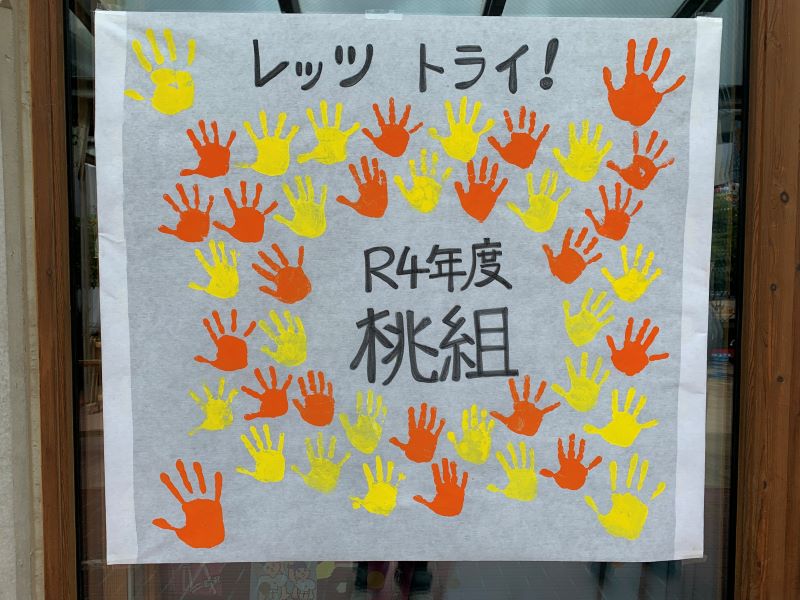 レッツ トライ!
R4年度
桃組